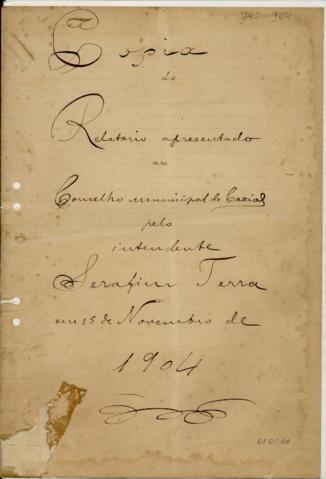 142-904
Copia
do
Relatorio apresentado
ao
Conselho Municipal de Caxias
pelo
intendente
Serafim Terra
em 15 de Novembro de
1904
01.01.06